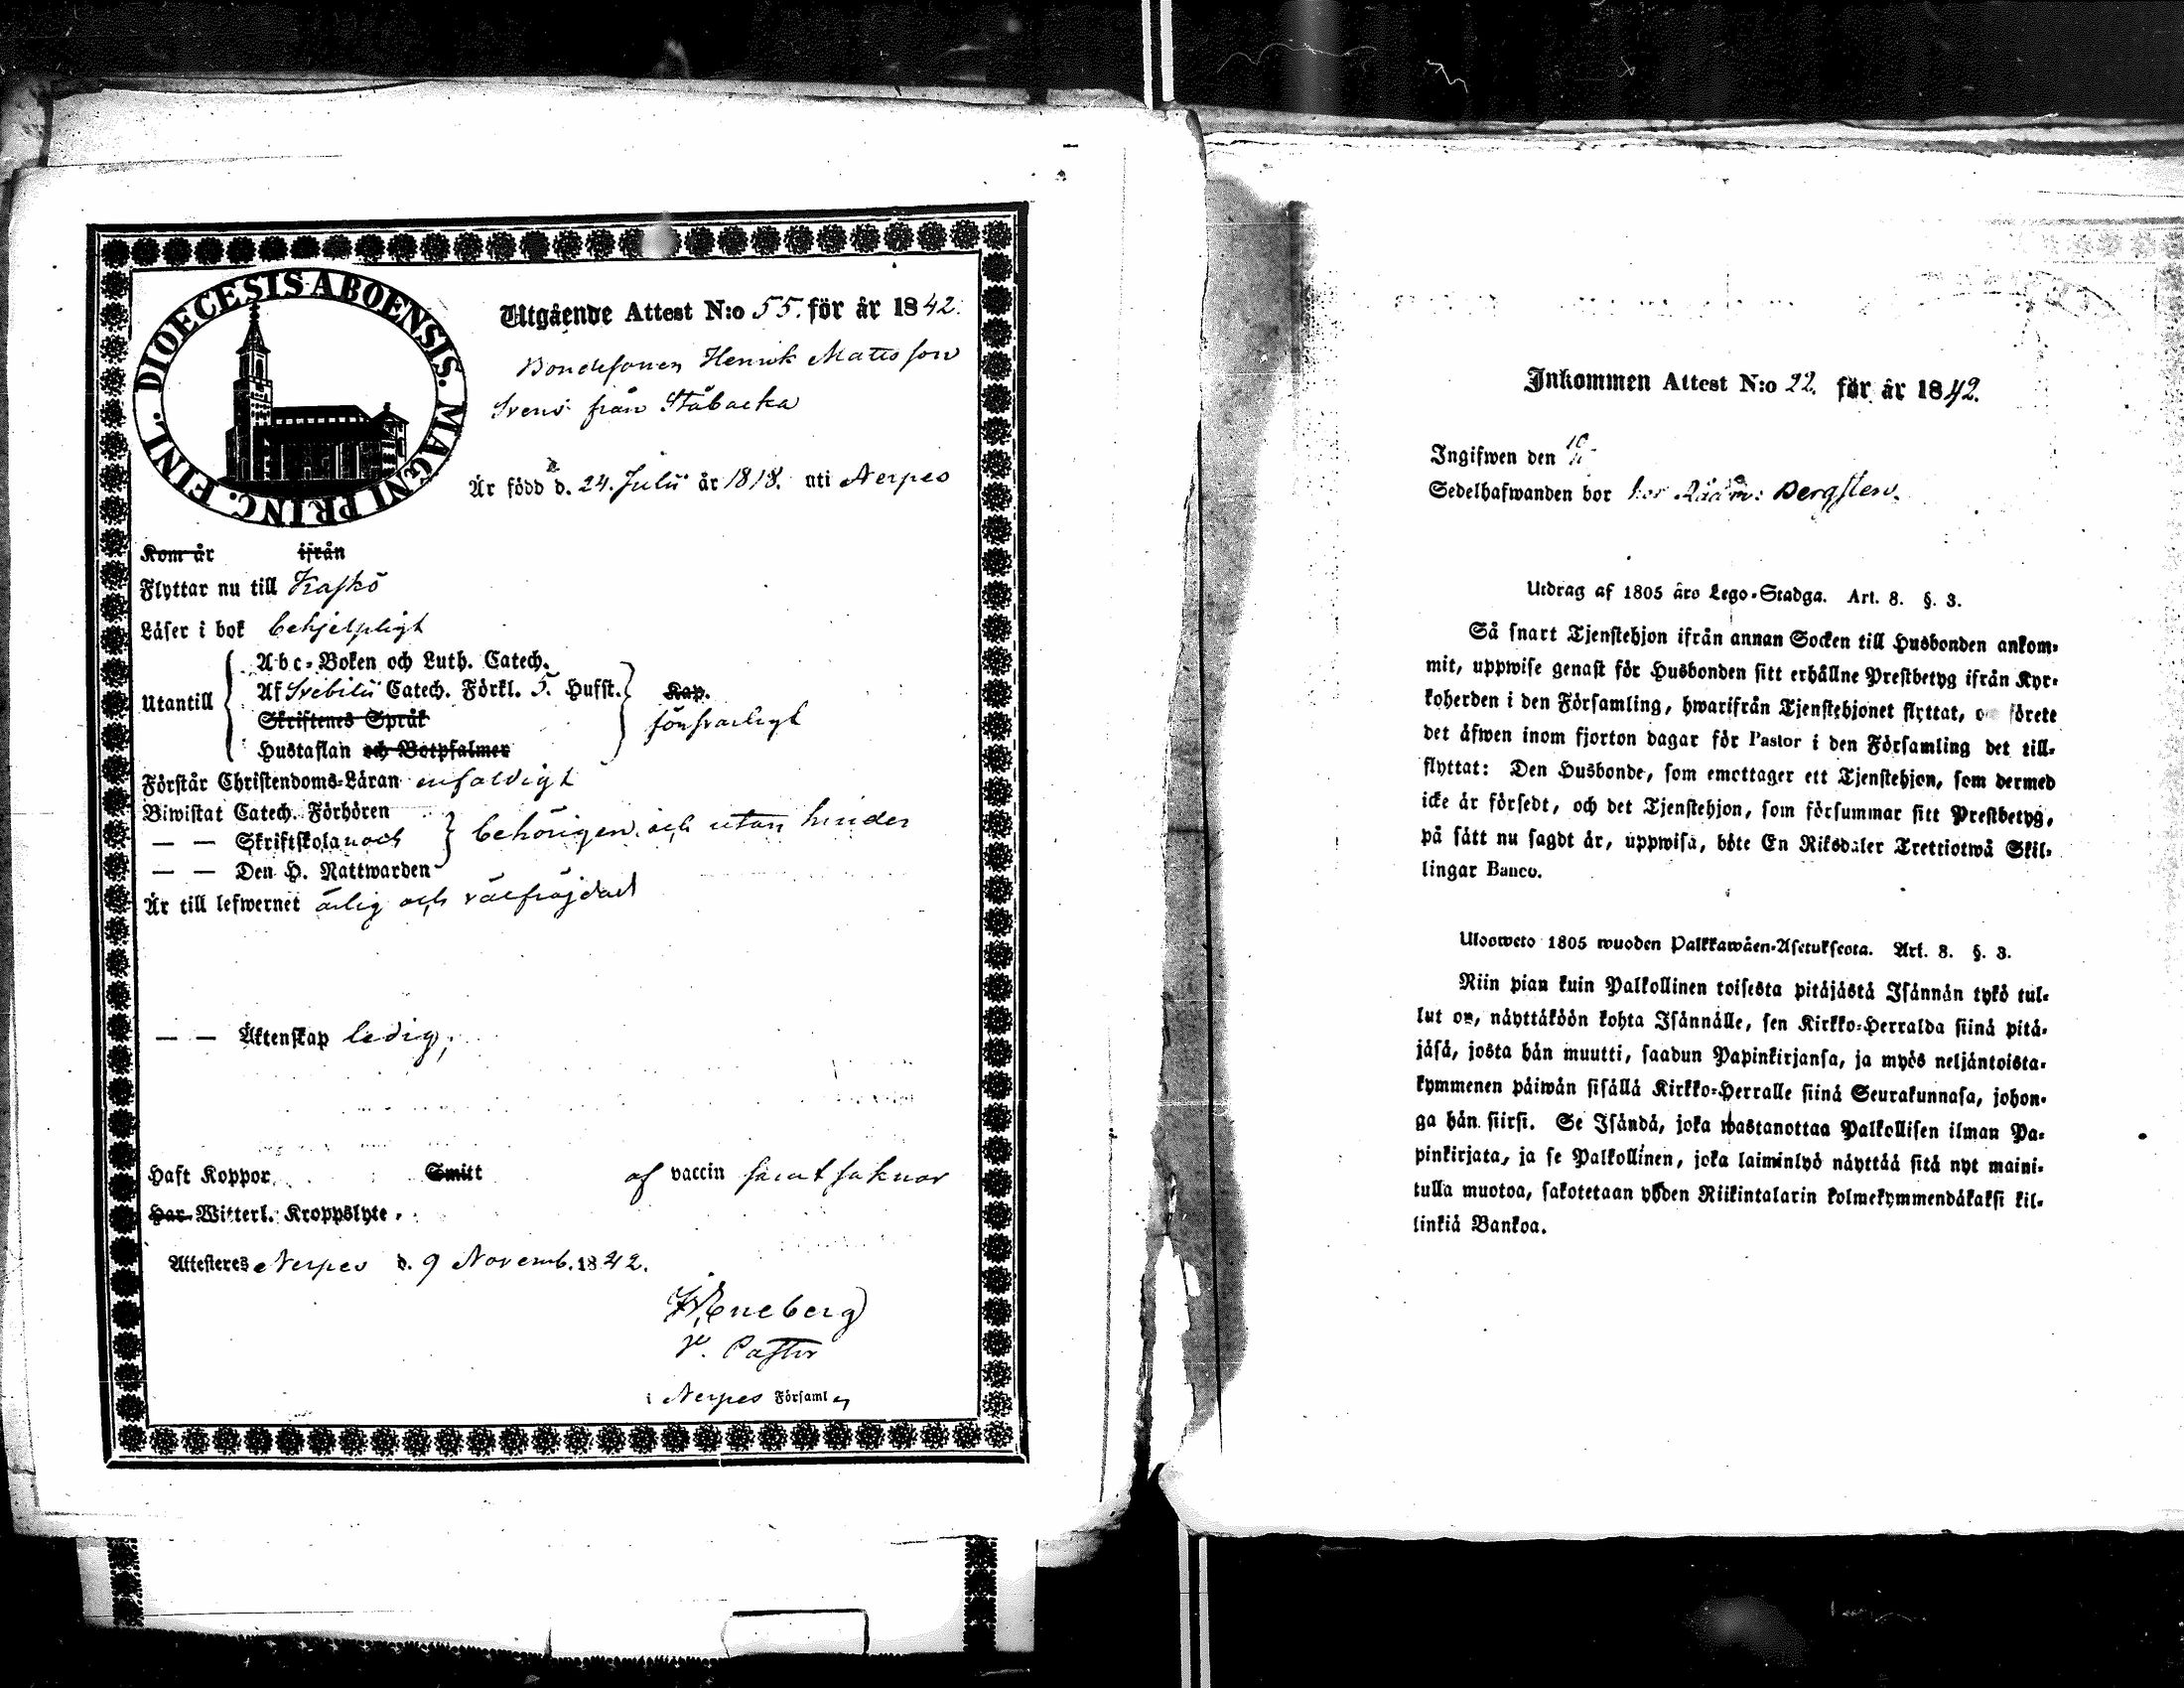 DIOECESIS ABOENSIS. MAGNI PRINC. FINL.
Utgående Attest N:o 55. för år 1842.
Bondesonen Henrik Mattsson
Svens från Ståbacka
Är född d. 24. Julii år 1818. uti Nerpes
Kom år ifrån
Flyttar nu till Kaskö
Läser i bok behjelpligt
Utantill
Abc-Boken och Luth. Catech.
Af Svebilii Catech. Förkl. 5. Hufst.
Kap.
Skriftenes Språk
försvarligt
Hustaflan och Botpsalmer
Förstår Christendoms-Läran enfaldigt
Biwistat Catech. Förhören
— — Skriftskolan och
behörigen och utan hinder
— — Den H. Nattwarden
Är till lefwernet ärlig och välfräjdad
— — Äktenskap ledig;
Haft Koppor Smitt af vaccin samt saknar
Har Witterl. Kroppslyte.
Attesteres Nerpes d. 9 Novemb. 1842.
Heneberg
V. Pastor
i Nerpes Församl
Inkommen Attest N:o 22. för år 1842.
Ingifwen den
Sedelhafwanden bor hos Rådm: Bergsten.
Utdrag af 1805 års Lego-Stadga. Art. 8. §. 3.
Så snart Tjenstehjon ifrån annan Socken till Husbonden ankom-
mit, uppwise genast för Husbonden sitt erhållne Prestbetyg ifrån Kyr-
koherden i den Församling, hwarifrån Tjenstehjonet flyttat, o förete
det äfwen inom fjorton dagar för Pastor i den Församling det till-
flyttat: Den Husbonde, som emottager ett Tjenstehjon, som dermed
icke är försedt, och det Tjenstehjon, som försummar sitt Prestbetyg,
på sätt nu sagdt är, uppwisa, böte En Riksdaler Trettiotwå Skil-
lingar Banco.
Uloosweto 1805 wuoden Palkkawäen-Asetuksesta. Art. 8. §. 3.
Niin pian kuin Palkollinen toisesta pitäjästä Isännän tykö tul-
lut on, näyttäköön kohta Isännälle, sen Kirkko-Herralda siinä pitä-
jäsä, josta hän muutti, saadun Papinkirjansa, ja myös neljäntoista-
kymmenen päiwän sisällä Kirkko-Herralle siinä Seurakunnasa, johon-
ga hän siirsi. Se Isändä, joka wastanottaa Palkollisen ilman Pa-
pinkirjata, ja se Palkollinen, joka laiminlyö näyttää sitä nyt maini-
tulla muotoa, sakotetaan yhden Riikintalarin kolmekymmendäkaksi kil-
linkiä Bankoa.